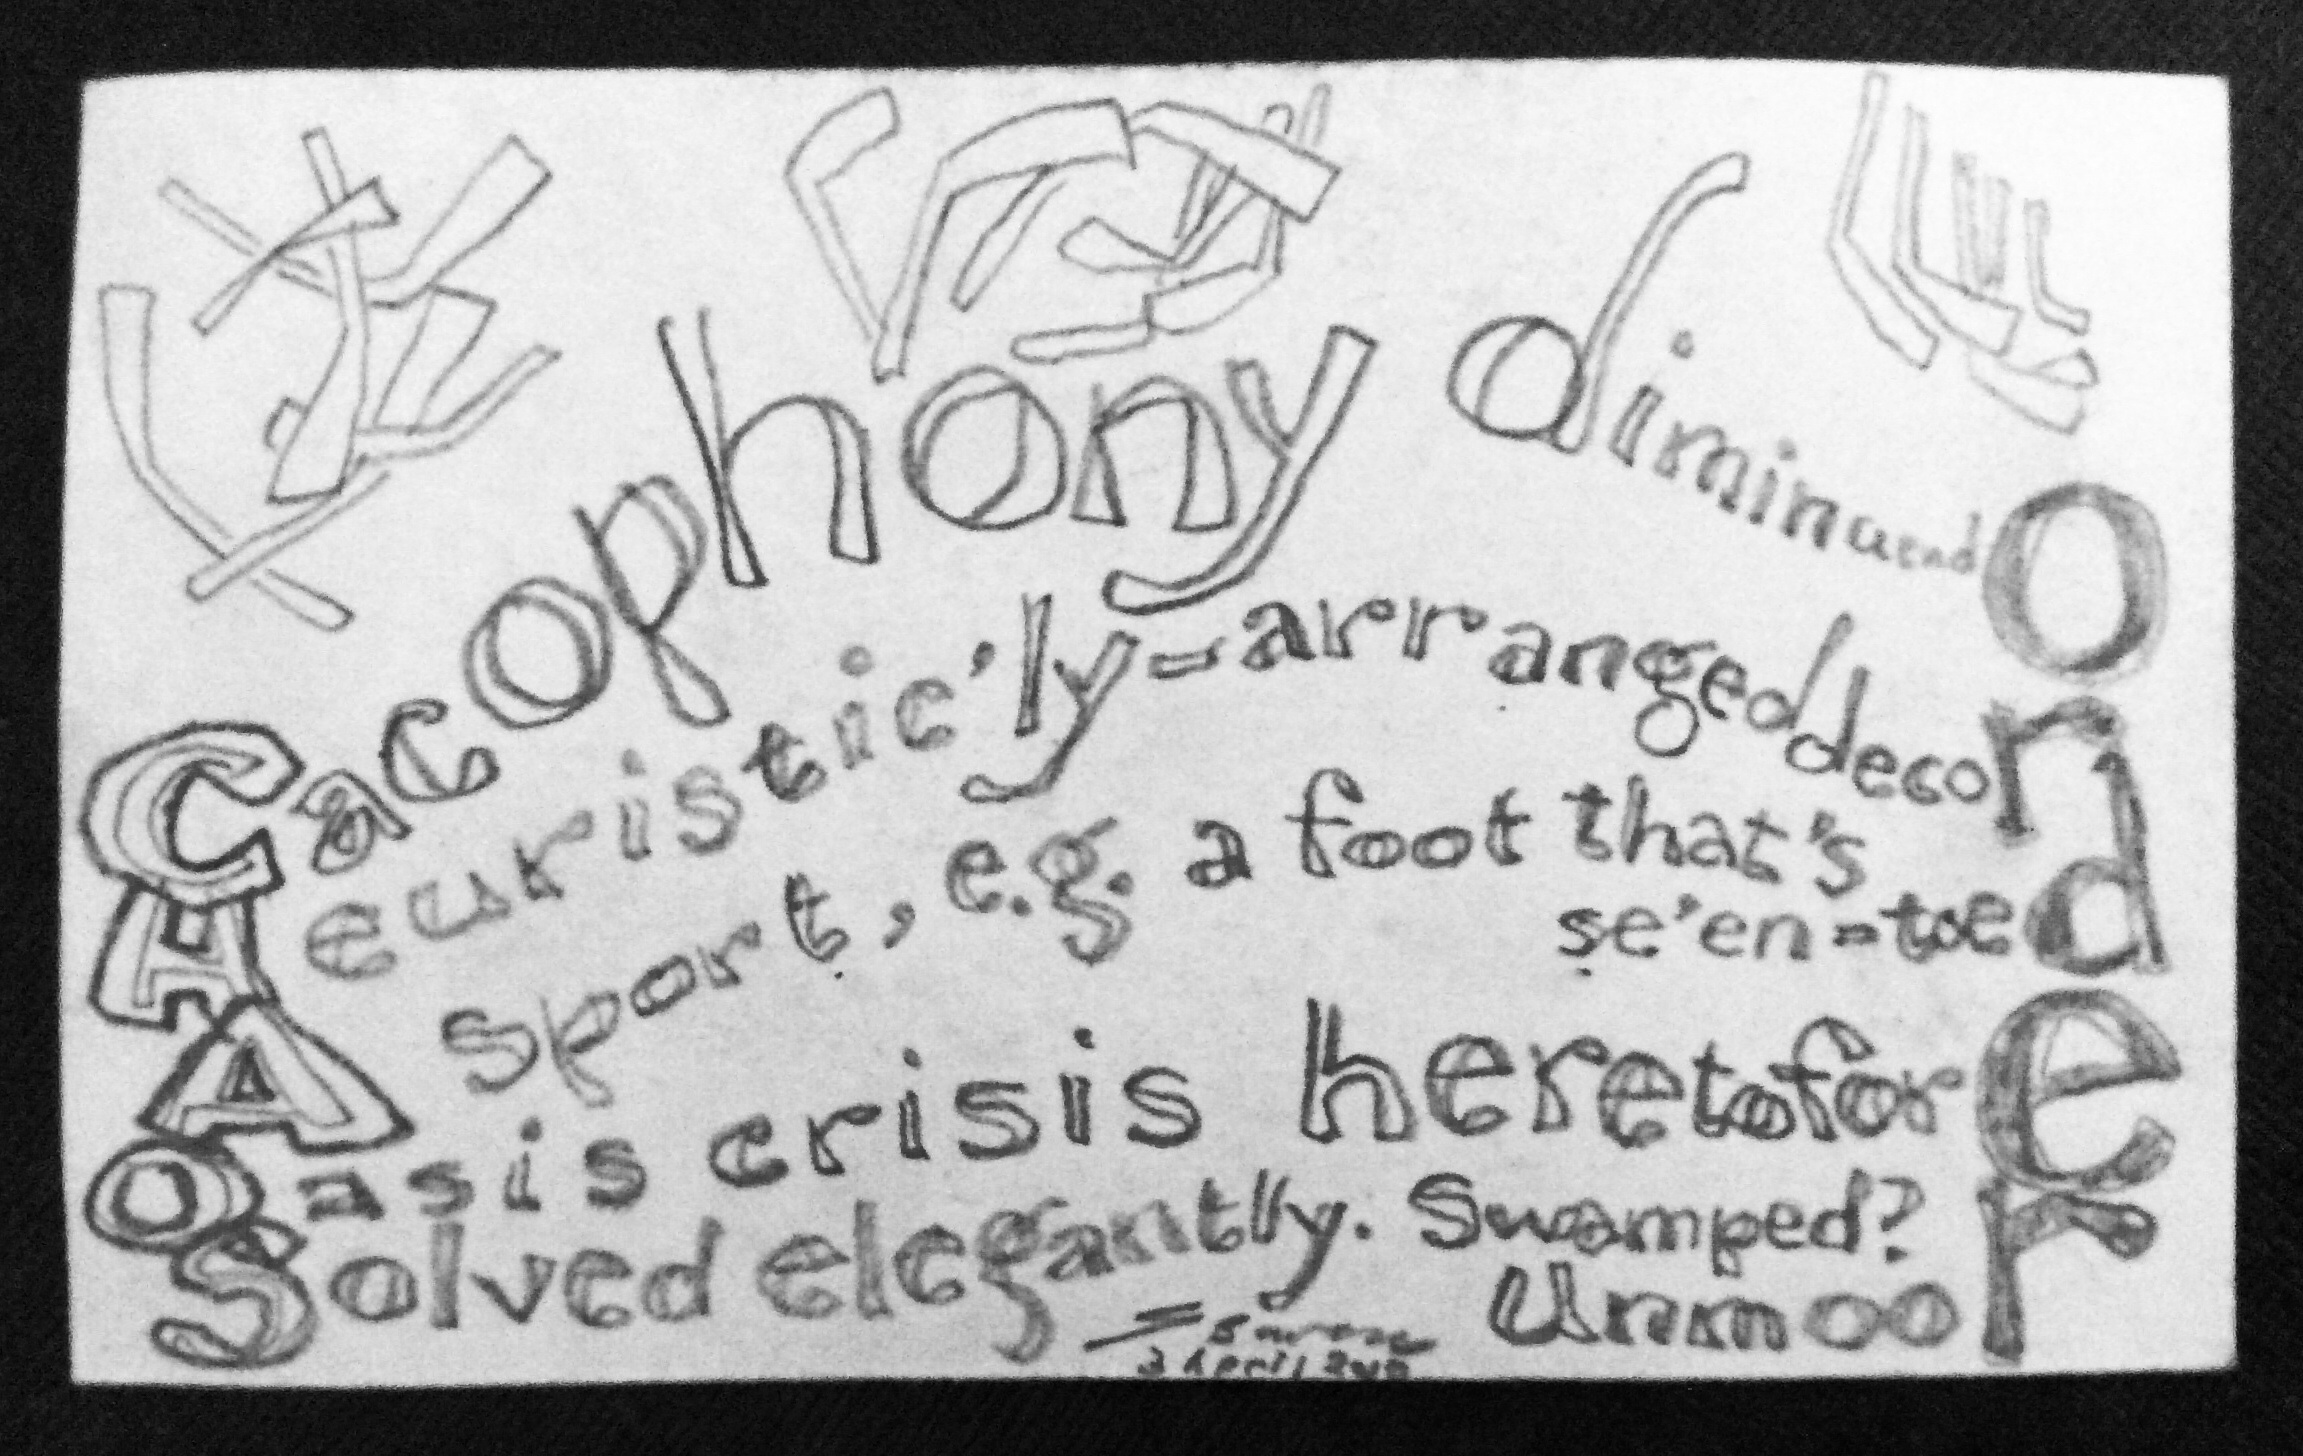 Cacophony diminuendo
Heuristic'ly=arranged decor
A sport, e.g. a foot that's
se'en=toed
Oasis crisis heretofore
Solved elegantly. Swamped?
Unmoor
April